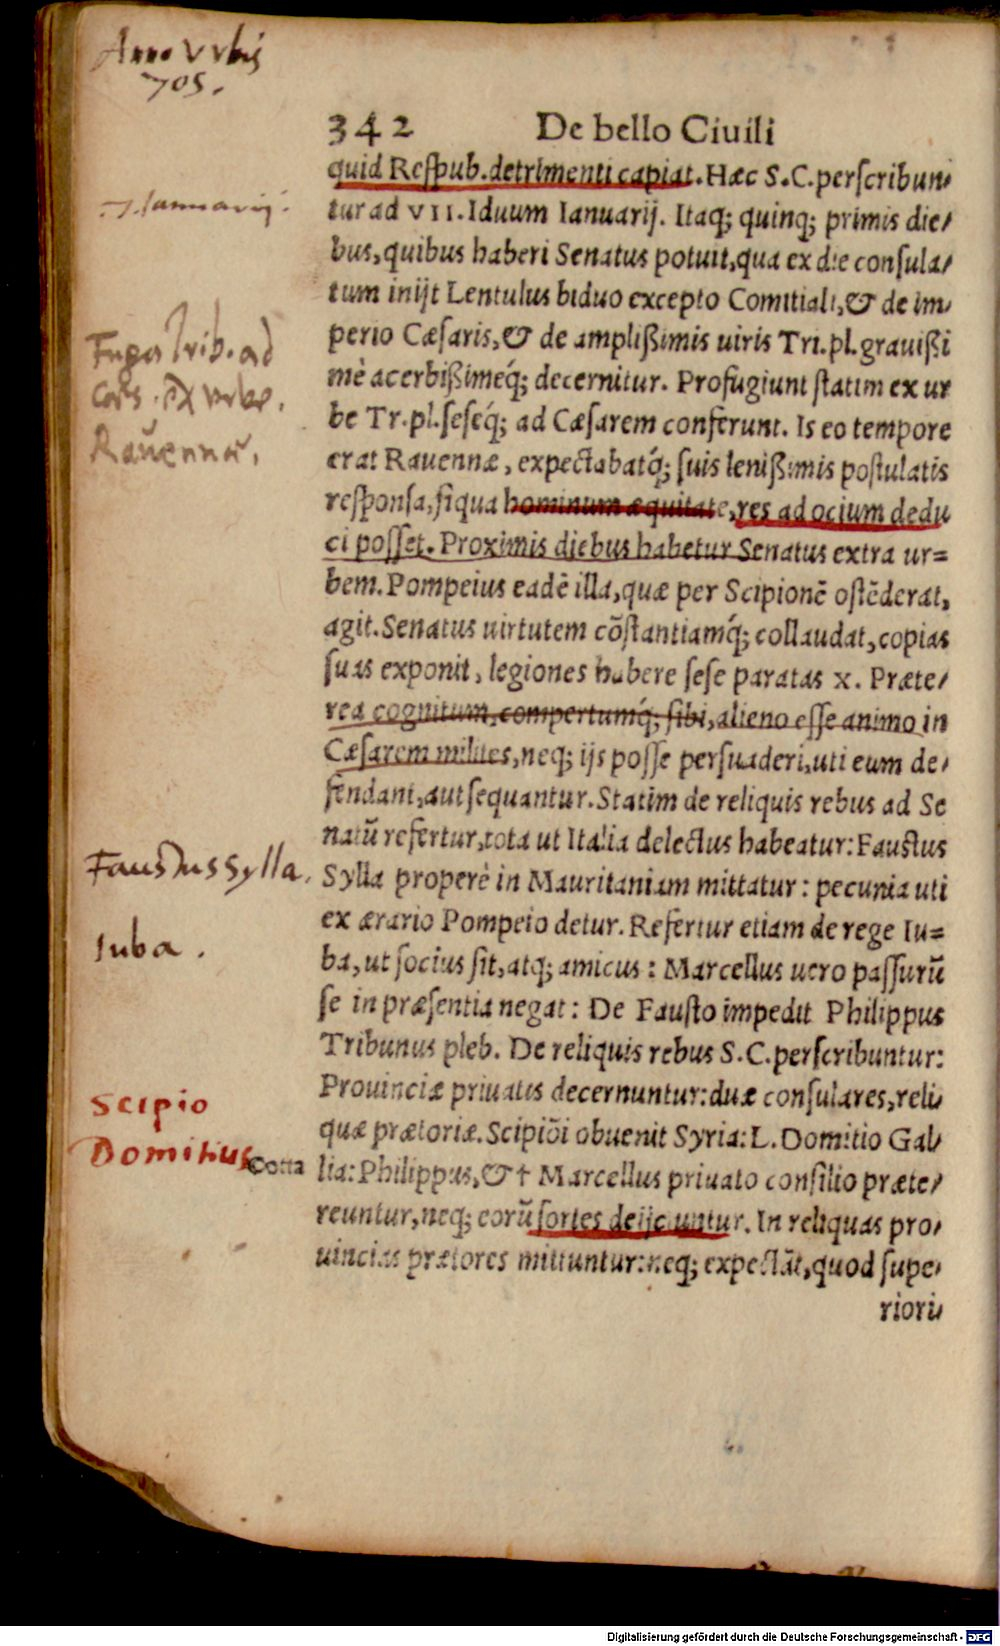 Anno Vrbis
705.
342 De bello Ciuili
quid Respub. detrimenti capiat. Hæc S.C. perscribun-
7. Iannuarij.
tur ad VII. Iduum Ianuarij. Itaq; quinq; primis die-
bus, quibus haberi Senatus potuit, qua ex die consula-
tum inijt Lentulus biduo excepto Comitiali, & de im-
Fuga Trib. ad
Cæs. ex vrbe.
Rauennæ.
perio Cæsaris, & de amplißimis uiris Tri.pl. grauißi
mè acerbißimeq́; decernitur. Profugiunt statim ex ur
be Tr.pl. seseq́; ad Cæsarem conferunt. Is eo tempore
erat Rauennæ, expectabatq́; suis lenißimis postulatis
responsa, si qua hominum æquitate, res ad ocium dedu
ci posset. Proximis diebus habetur Senatus extra ur=
bem. Pompeius eadē illa, quæ per Scipionē ostēderat,
agit. Senatus uirtutem cōstantiamq́; collaudat, copias
suas exponit, legiones habere sese paratas x. Præte-
rea cognitum, compertumq́; sibi, alieno esse animo in
Cæsarem milites, neq; ijs posse persuaderi, uti eum de-
fendant, aut sequantur. Statim de reliquis rebus ad Se
natū refertur, tota ut Italia delectus habeatur: Faustus
Faustus Sylla.
Sylla properè in Mauritaniam mittatur: pecunia uti
ex ærario Pompeio detur. Refertur etiam de rege Iu=
Iuba.
ba, ut socius sit, atq; amicus: Marcellus uero passurū
se in præsentia negat: De Fausto impedit Philippus
Tribunus pleb. De reliquis rebus S.C. perscribuntur:
Prouinciæ priuatis decernuntur: duæ consulares, reli-
Scipio
quæ prætoriæ. Scipiōi obuenit Syria: L. Domitio Gal-
Domitius
Cotta
lia: Philippus, & † Marcellus priuato consilio præte-
reuntur, neq; eorū sortes deijciuntur. In reliquas pro-
uincias prætores mittuntur: neq; expectāt, quod supe-
riori-
Digitalisierung gefördert durch die Deutsche Forschungsgemeinschaft - DFG